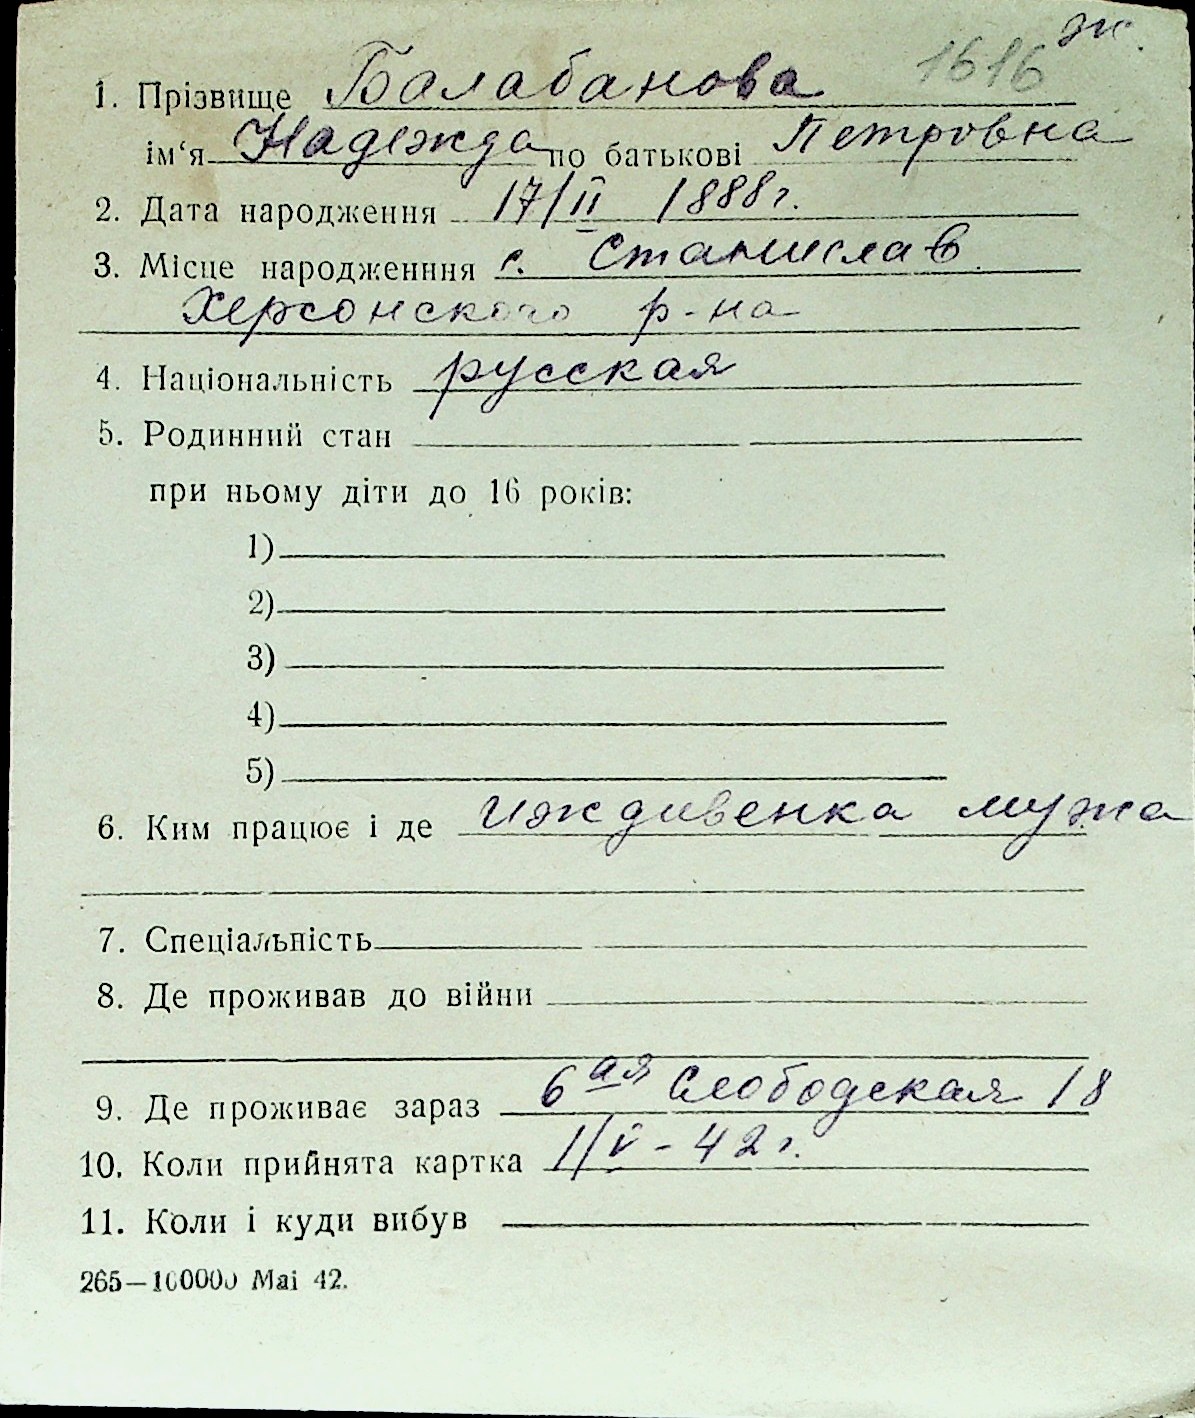 1616 ж.
1. Прізвище Балабанова
ім'я Надежда по батькові Петровна
2. Дата народження 17/II 1888 г.
3. Місце народженння с. Станислав
Херсонского р-на
4. Національність русская
5. Родинний стан
при ньому діти до 16 років:
1)
2)
3)
4)
5)
6. Ким працює і де иждивенка мужа
7. Спеціальність
8. Де проживав до війни
9. Де проживає зараз 6ая Слободская 18
10. Коли прийнята картка 1/V - 42 г.
11. Коли і куди вибув
265—100000 Mai 42.